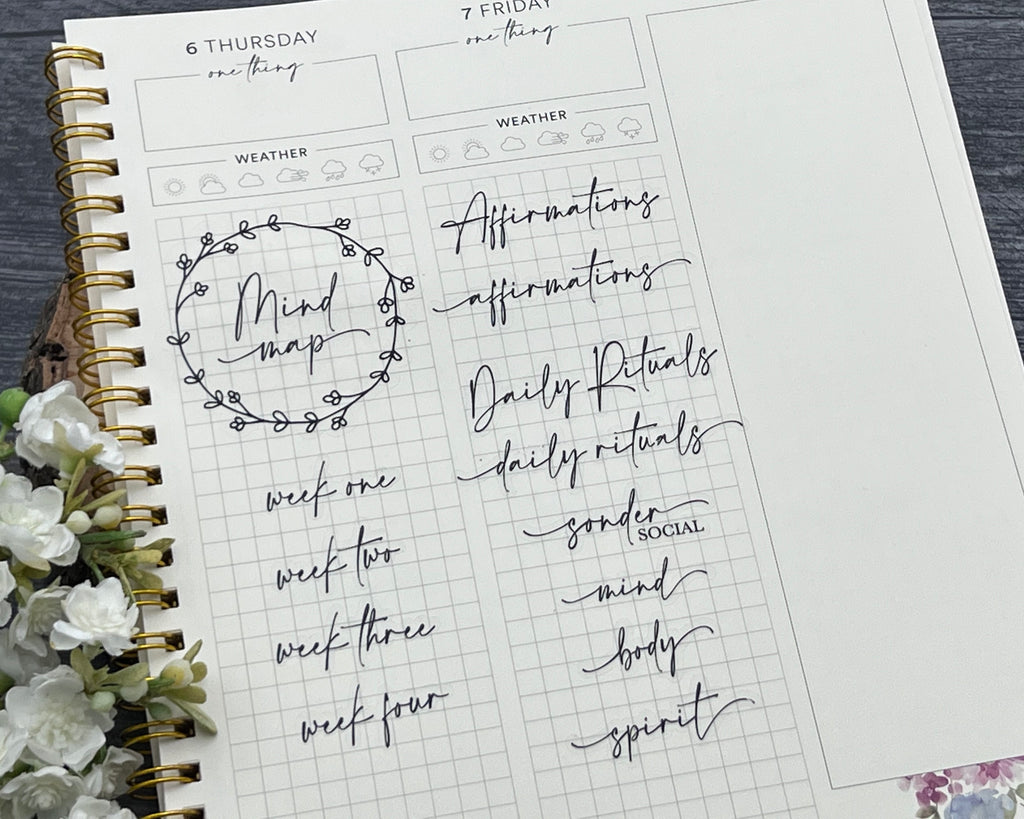 6 THURSDAY
one thing
WEATHER
Mind
map
week one
week two
week three
week four
7 FRIDAY
one thing
WEATHER
Affirmations
affirmations
Daily Rituals
daily rituals
sonder
SOCIAL
mind
body
spirit